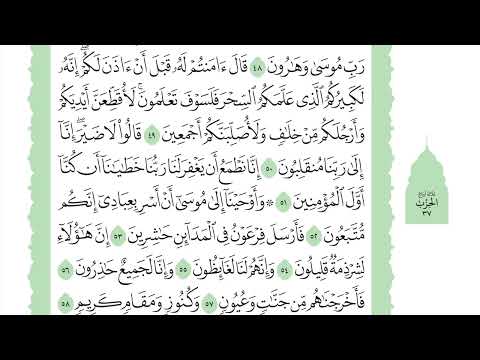 رَبِّ مُوسَىٰ وَهَٰرُونَ ٤٨ قَالَ ءَامَنتُمْ لَهُۥ قَبْلَ أَنْ ءَاذَنَ لَكُمْ ۖ إِنَّهُۥ
لَكَبِيرُكُمُ ٱلَّذِى عَلَّمَكُمُ ٱلسِّحْرَ فَلَسَوْفَ تَعْلَمُونَ ۚ لَأُقَطِّعَنَّ أَيْدِيَكُمْ
وَأَرْجُلَكُم مِّنْ خِلَٰفٍ وَلَأُصَلِّبَنَّكُمْ أَجْمَعِينَ ٤٩ قَالُوا۟ لَا ضَيْرَ ۖ إِنَّآ
إِلَىٰ رَبِّنَا مُنقَلِبُونَ ٥٠ إِنَّا نَطْمَعُ أَن يَغْفِرَ لَنَا رَبُّنَا خَطَٰيَٰنَآ أَن كُنَّآ
أَوَّلَ ٱلْمُؤْمِنِينَ ٥١ ۞ وَأَوْحَيْنَآ إِلَىٰ مُوسَىٰٓ أَنْ أَسْرِ بِعِبَادِىٓ إِنَّكُم
مُّتَّبَعُونَ ٥٢ فَأَرْسَلَ فِرْعَوْنُ فِى ٱلْمَدَآئِنِ حَٰشِرِينَ ٥٣ إِنَّ هَٰٓؤُلَآءِ
لَشِرْذِمَةٌ قَلِيلُونَ ٥٤ وَإِنَّهُمْ لَنَا لَغَآئِظُونَ ٥٥ وَإِنَّا لَجَمِيعٌ حَٰذِرُونَ ٥٦
فَأَخْرَجْنَٰهُم مِّن جَنَّٰتٍ وَعُيُونٍ ٥٧ وَكُنُوزٍ وَمَقَامٍ كَرِيمٍ ٥٨
الحِزْب
٣٧